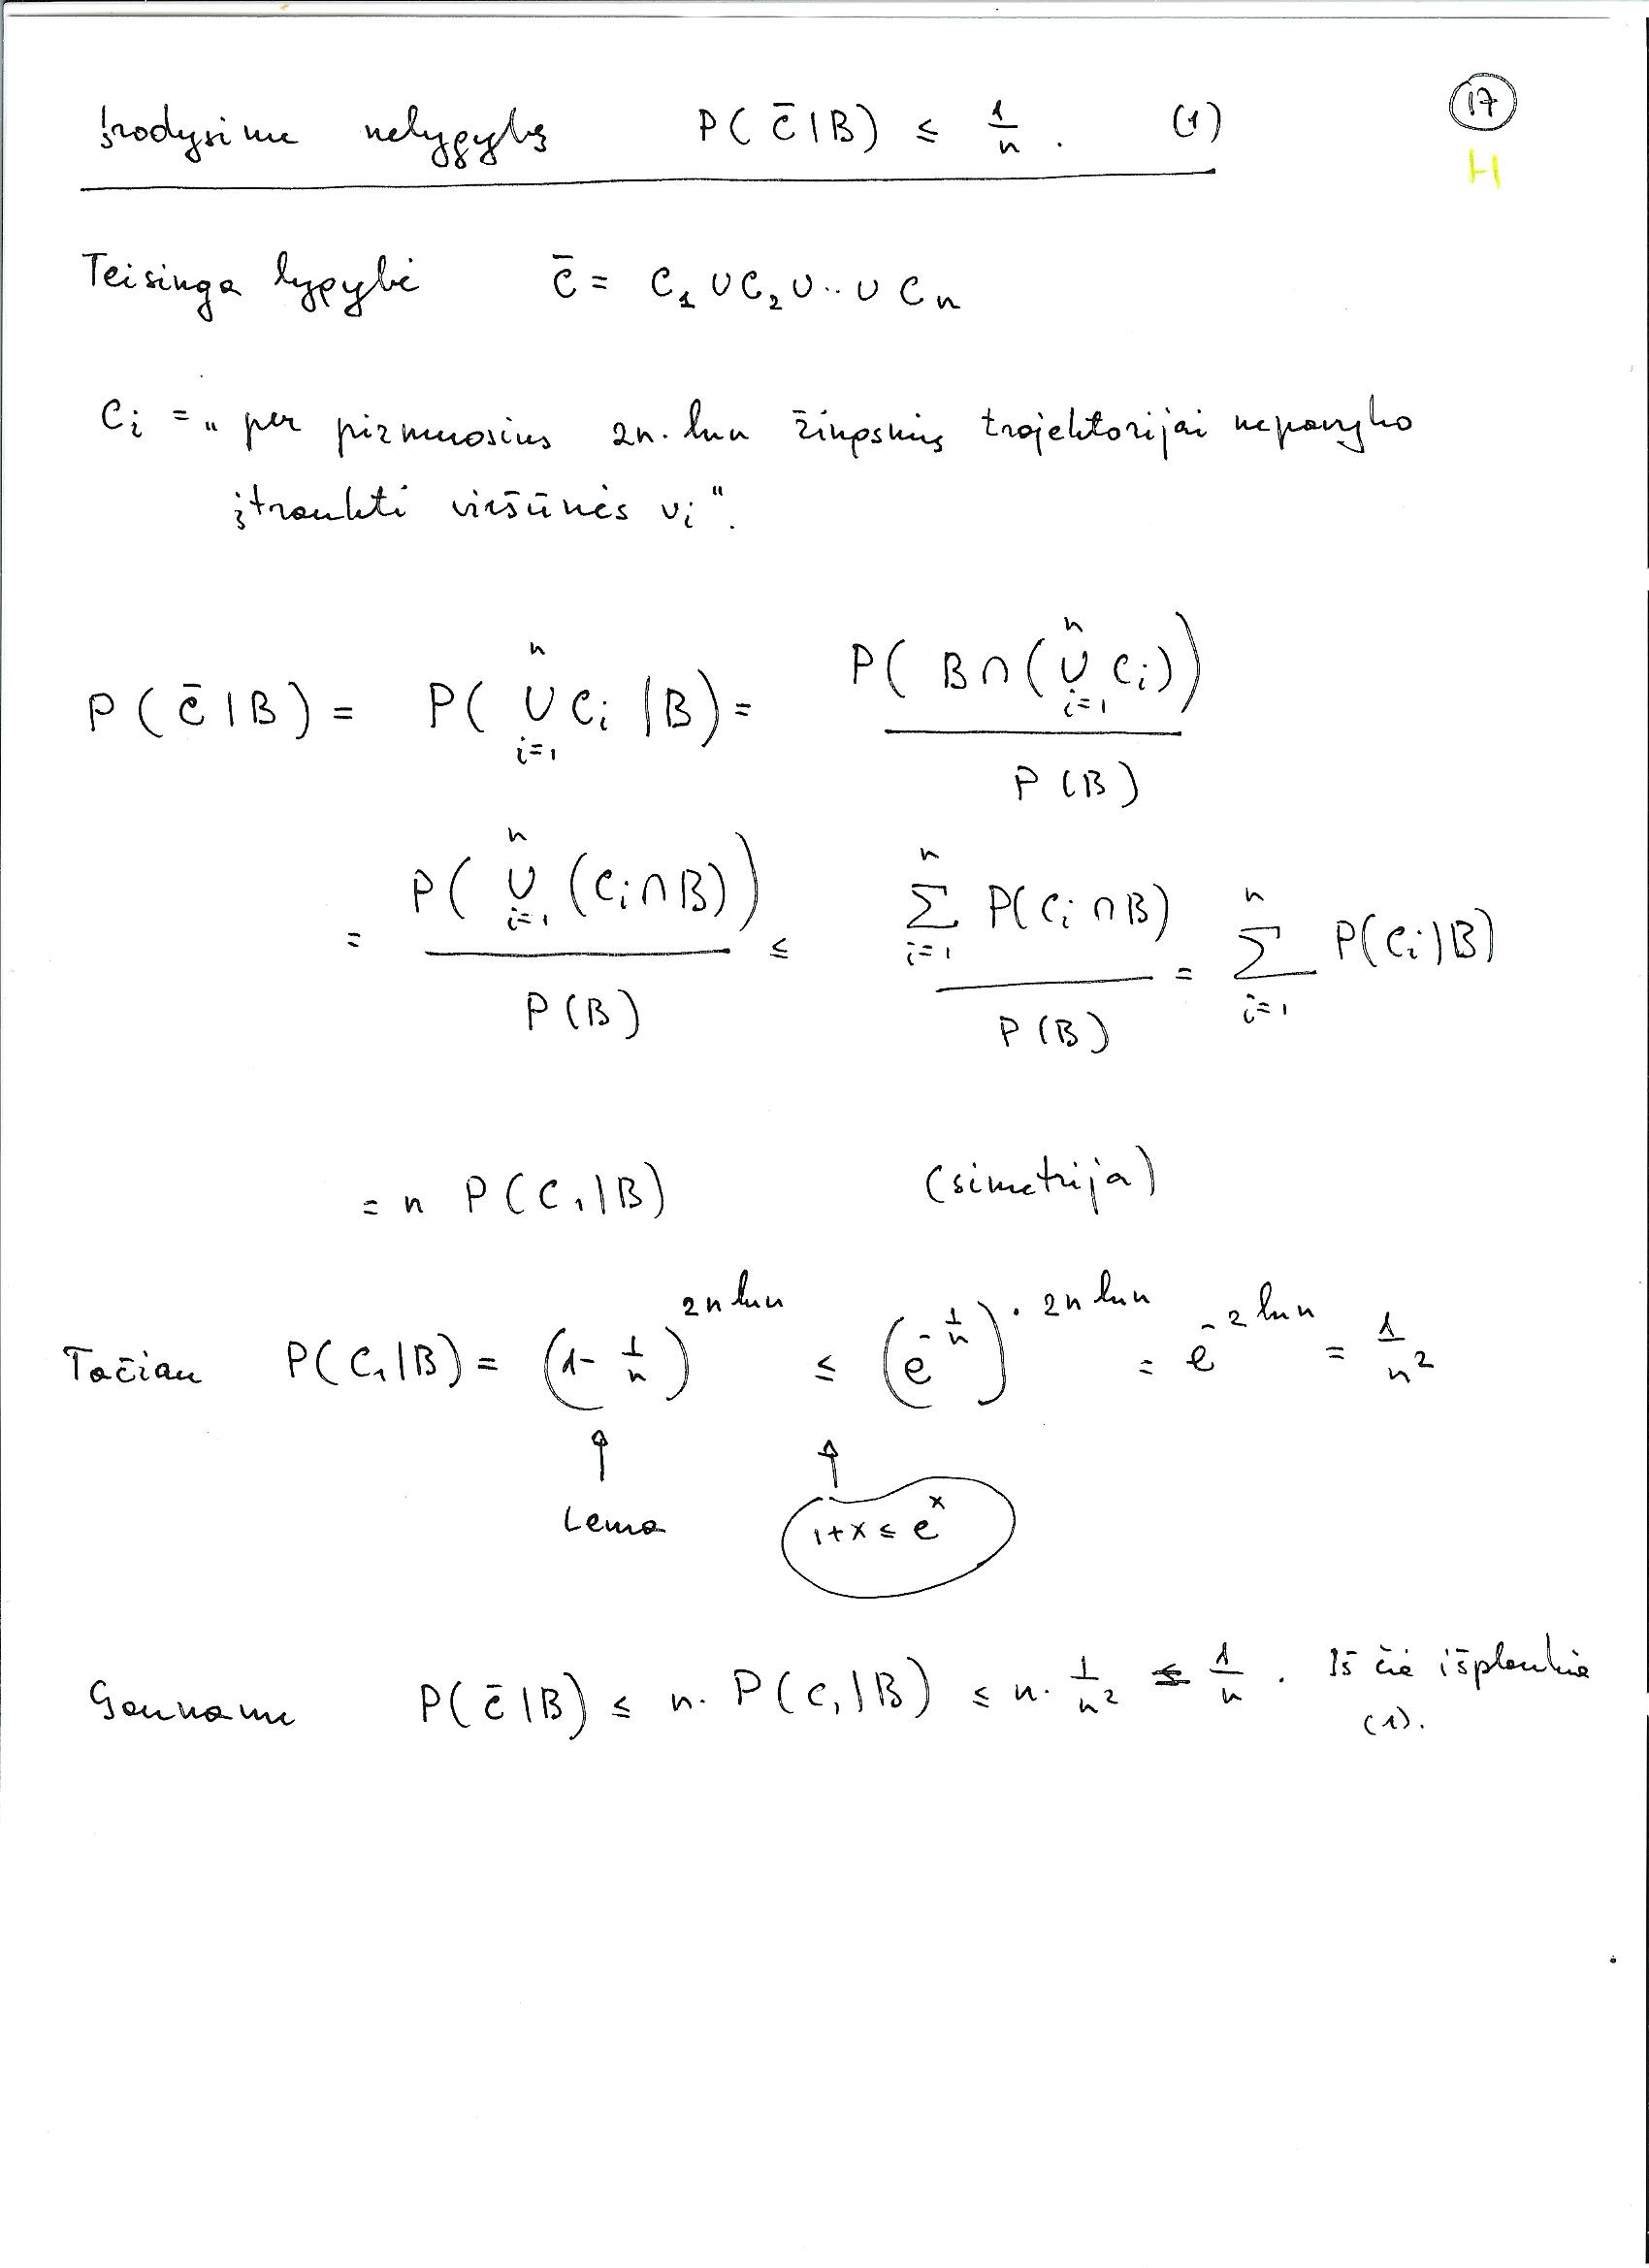 Įrodysime nelygybę P( C̄ | B) ≤ 1/n . (1)
17
H
Teisinga lygybė C̄ = C₁ ∪ C₂ ∪ .. ∪ Cₙ
Cᵢ = „ per pirmuosius 2n · ln n žingsnių trajektorijai nepavyko
įtraukti viršūnės vᵢ“.
P( C̄ | B ) = P( ⋃ᵢ₌₁ⁿ Cᵢ | B ) = P( B ∩ ( ⋃ᵢ₌₁ⁿ Cᵢ )) / P(B)
= P( ⋃ᵢ₌₁ⁿ (Cᵢ ∩ B)) / P(B) ≤ ∑ᵢ₌₁ⁿ P(Cᵢ ∩ B) / P(B) = ∑ᵢ₌₁ⁿ P(Cᵢ | B)
= n P(C₁ | B) (simetrija)
Tačiau P(C₁ | B) = (1 - 1/n)^(2n ln n) ≤ (e^(-1/n))^(· 2n ln n) = e^(-2 ln n) = 1/n²
Lema
1+x ≤ eˣ
Gauname P( C̄ | B) ≤ n · P(C₁ | B) ≤ n · 1/n² ≤ 1/n . Iš čia išplaukia
(1).